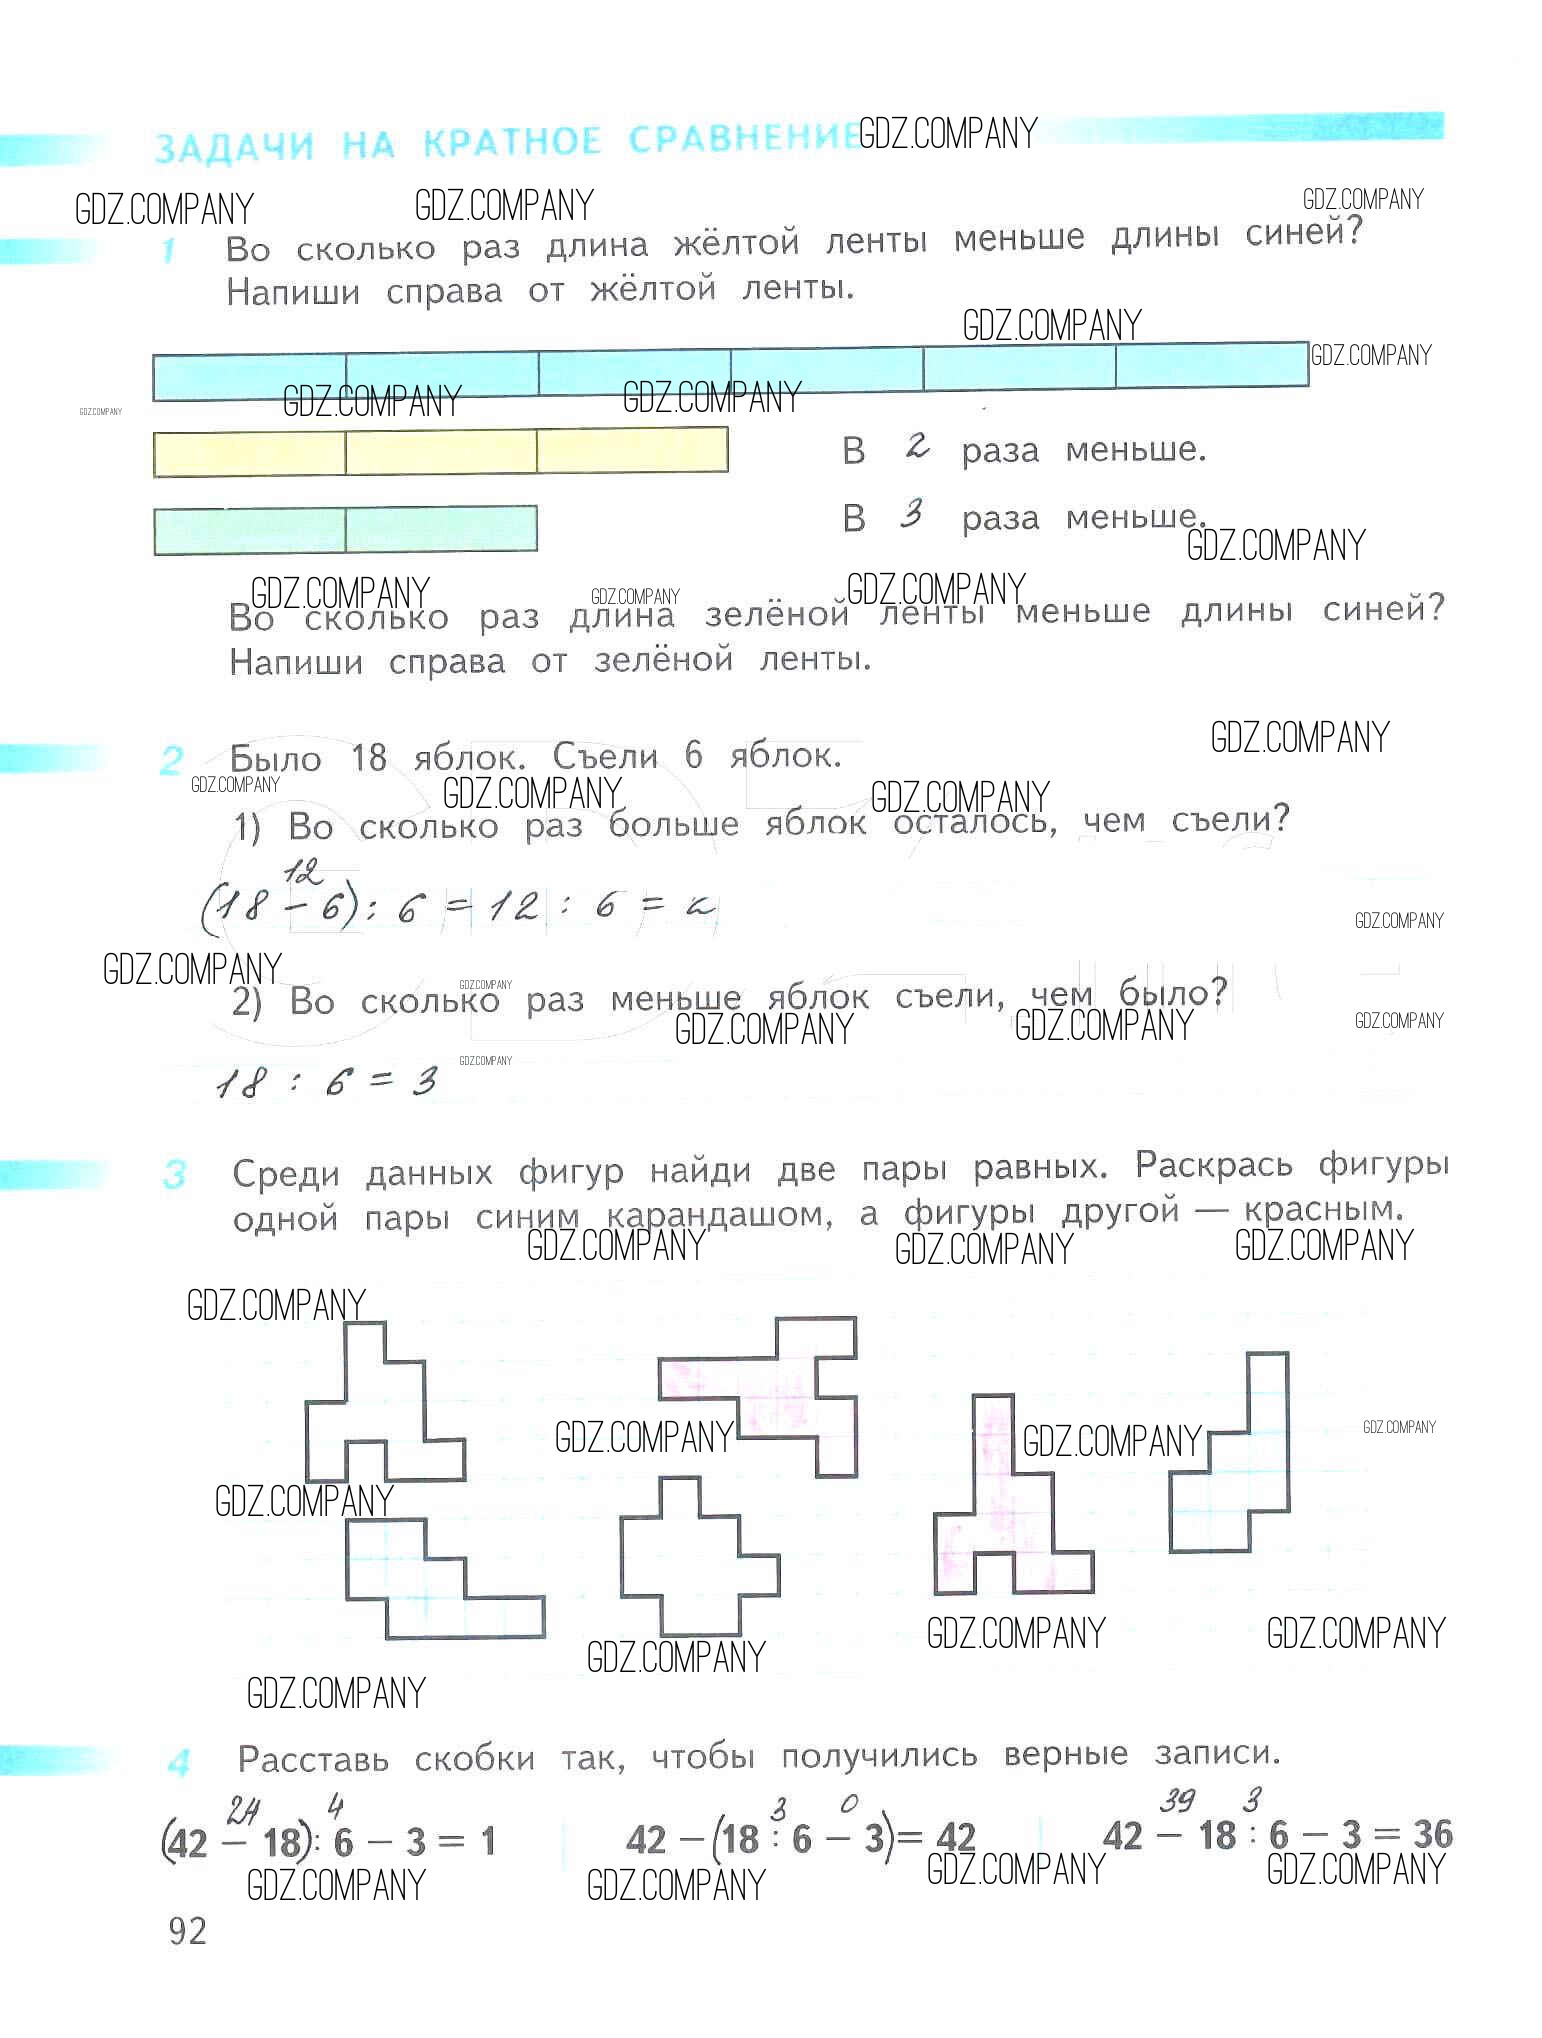 ЗАДАЧИ НА КРАТНОЕ СРАВНЕНИЕ GDZ.COMPANY
GDZ.COMPANY GDZ.COMPANY GDZ.COMPANY
1 Во сколько раз длина жёлтой ленты меньше длины синей?
Напиши справа от жёлтой ленты.
GDZ.COMPANY
GDZ.COMPANY
GDZ.COMPANY GDZ.COMPANY GDZ.COMPANY
В 2 раза меньше.
В 3 раза меньше.
GDZ.COMPANY
GDZ.COMPANY GDZ.COMPANY GDZ.COMPANY
Во сколько раз длина зелёной ленты меньше длины синей?
Напиши справа от зелёной ленты.
GDZ.COMPANY
2 Было 18 яблок. Съели 6 яблок.
GDZ.COMPANY GDZ.COMPANY GDZ.COMPANY
1) Во сколько раз больше яблок осталось, чем съели?
12
(18 - 6) : 6 = 12 : 6 = 2
GDZ.COMPANY
GDZ.COMPANY GDZ.COMPANY
2) Во сколько раз меньше яблок съели, чем было?
GDZ.COMPANY GDZ.COMPANY GDZ.COMPANY
GDZ.COMPANY
18 : 6 = 3
3 Среди данных фигур найди две пары равных. Раскрась фигуры
одной пары синим карандашом, а фигуры другой — красным.
GDZ.COMPANY GDZ.COMPANY GDZ.COMPANY
GDZ.COMPANY
GDZ.COMPANY GDZ.COMPANY GDZ.COMPANY
GDZ.COMPANY
GDZ.COMPANY GDZ.COMPANY
GDZ.COMPANY
GDZ.COMPANY
4 Расставь скобки так, чтобы получились верные записи.
24 4 3 0 39 3
(42 – 18) : 6 – 3 = 1 42 – (18 : 6 – 3) = 42 42 – 18 : 6 – 3 = 36
GDZ.COMPANY GDZ.COMPANY GDZ.COMPANY GDZ.COMPANY
92